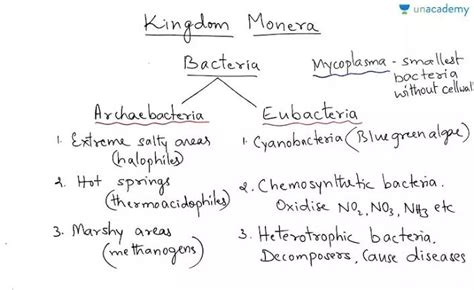 unacademy
Kingdom Monera
Bacteria
Mycoplasma - smallest
bacteria
without cellwall
Archaebacteria
1. Extreme salty areas
(halophiles)
2. Hot springs
(thermoacidophiles)
3. Marshy areas
(methanogens)
Eubacteria
1. Cyanobacteria (Blue green algae)
2. Chemosynthetic bacteria.
Oxidise NO2, NO3, NH3 etc
3. Heterotrophic bacteria.
Decomposers, Cause diseases